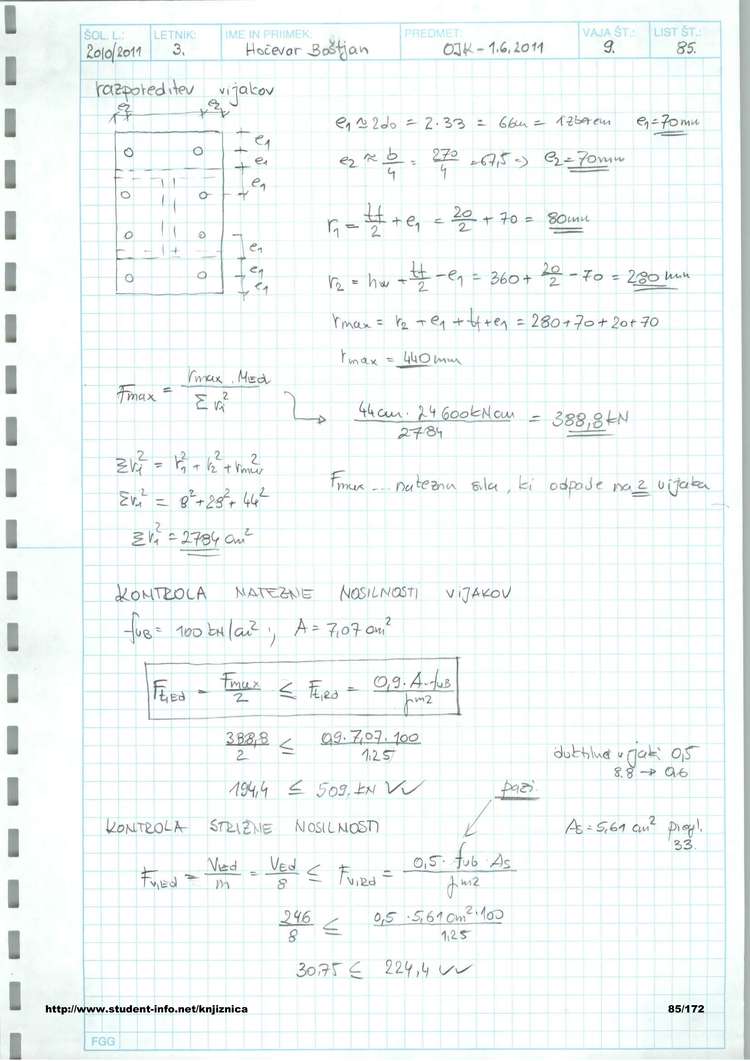 ŠOL. L.: LETNIK: IME IN PRIIMEK: PREDMET: VAJA ŠT.: LIST ŠT.:
2010/2011 3. Hočevar Boštjan OJK - 1.6.2011 9. 85.
razporeditev vijakov
e2 e2
e1
e1
e1
e1
e1
e1
e1 ≈ 2d0 = 2·33 = 66mm = izberem e1 = 70mm
e2 ≈ b/4 = 270/4 = 67,5 => e2 = 70mm
r1 = tf/2 + e1 = 20/2 + 70 = 80mm
r2 = hw + tf/2 - e1 = 360 + 20/2 - 70 = 280 mm
rmax = r2 + e1 + tf + e1 = 280+70+20+70
rmax = 440mm
Fmax = rmax · MEd / Σ ri²
44cm · 24600kNcm / 2784 = 388,8kN
Σri² = r1² + r2² + rmax²
Σri² = 8² + 28² + 44²
Σri² = 2784 cm²
Fmax ... natezna sila, ki odpade na 2 vijaka
KONTROLA NATEZNE NOSILNOSTI VIJAKOV
fuB = 100 kN/cm² ; A = 7,07 cm²
Ft,Ed = Fmax/2 ≤ Ft,Rd = 0,9 · A · fuB / γm2
388,8/2 ≤ 0,9 · 7,07 · 100 / 1.25
194,4 ≤ 509. kN ✓✓
duktilni vijaki 0,5
8.8 → 0,6
pazi
KONTROLA STRIŽNE NOSILNOSTI
As = 5,61 cm² pregl. 33.
Fv,Ed = VEd/m = VEd/8 ≤ Fv,Rd = 0,5 · fub · As / γm2
246/8 ≤ 0,5 · 5,61 cm² · 100 / 1,25
30,75 ≤ 224,4 ✓✓
http://www.student-info.net/knjiznica 85/172
FGG